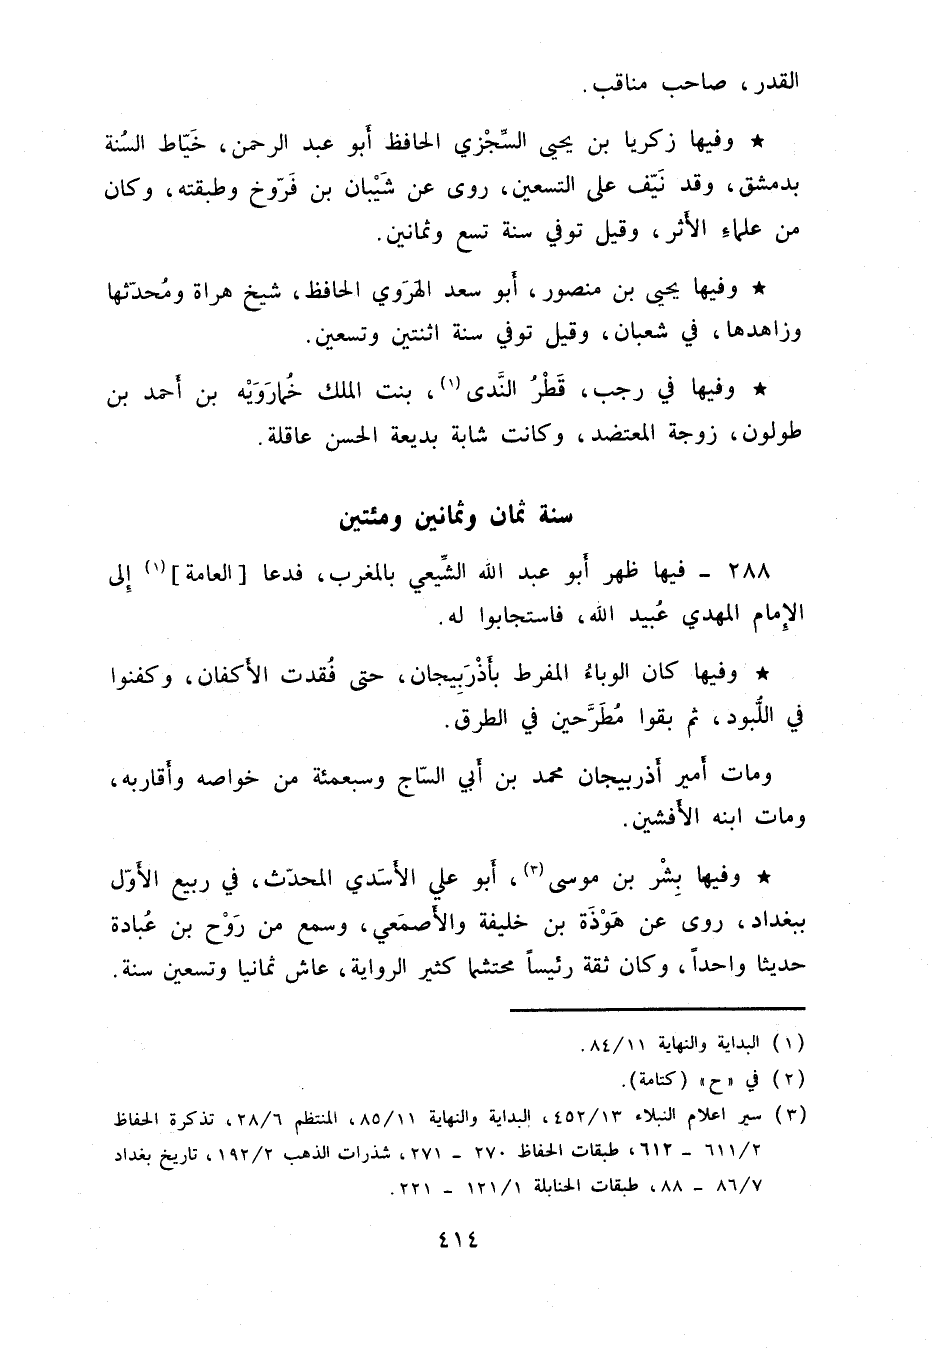 القدر ، صاحب مناقب .
★ وفيها زكريا بن يحيى السِّجْزي الحافظ أَبو عبد الرحمن ، خَيّاط السُنة
بدمشق ، وقد نَيّف على التسعين ، روى عن شَيْبان بن فَرّوخ وطبقته ، وكان
من علماءِ الأَثر ، وقيل توفي سنة تسع وثمانين .
★ وفيها يحيى بن منصور ، أَبو سعد الهَرَوي الحافظ ، شيخ هراة ومُحدّثها
وزاهدها ، في شعبان ، وقيل توفي سنة اثنتين وتسعين .
★ وفيها في رجب ، قَطْرُ النَّدى (١) ، بنت الملك خُمارَوَيْه بن أَحمد بن
طولون ، زوجة المعتضد ، وكانت شابة بديعة الحسن عاقلة .
سنة ثمان وثمانين ومئتين
٢٨٨ ــ فيها ظهر أَبو عبد الله الشِّيعي بالمغرب ، فدعا [ العامة ] (١) إلى
الإمام المهدي عُبيد الله ، فاستجابوا له .
★ وفيها كان الوباءُ المفرط بأَذْرَبِيجان ، حتى فُقدت الأَكفان ، وكفنوا
في اللُّبود ، ثم بقوا مُطَرَّحين في الطرق .
ومات أَمير أذربيجان محمد بن أَبي السّاج وسبعمئة من خواصه وأَقاربه ،
ومات ابنه الأَفشين .
★ وفيها بِشْر بن موسى (٣) ، أَبو علي الأَسَدي المحدّث ، في ربيع الأَوّل
ببغداد ، روى عن هَوْذَة بن خليفة والأَصمَعي ، وسمع من رَوْح بن عُبادة
حديثا واحداً ، وكان ثقة رئيساً محتشما كثير الرواية ، عاش ثمانيا وتسعين سنة .
(١) البداية والنهاية ٨٤/١١ .
(٢) في «ح» (كتامة) .
(٣) سير اعلام النبلاء ٤٥٢/١٣ ، البداية والنهاية ٨٥/١١ ، المنتظم ٢٨/٦ ، تذكرة الحفاظ
٦١١/٢ ــ ٦١٢ ، طبقات الحفاظ ٢٧٠ ــ ٢٧١ ، شذرات الذهب ١٩٢/٢ ، تاريخ بغداد
٨٦/٧ ــ ٨٨ ، طبقات الحنابلة ١٢١/١ ــ ٢٢١ .
٤١٤